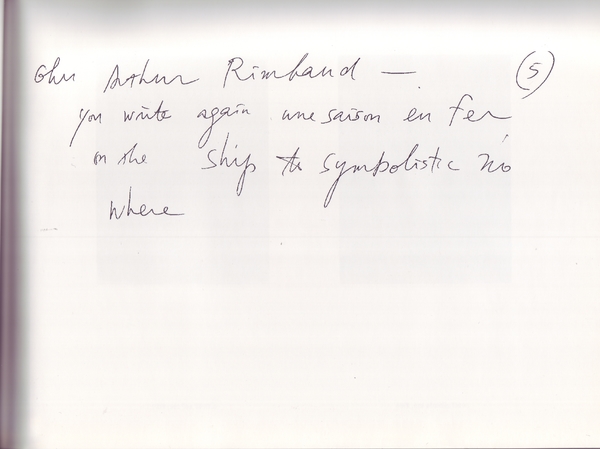 ohu Arthur Rimbaud — (5)
you write again une saison en fer
on the ship to symbolistic no
where